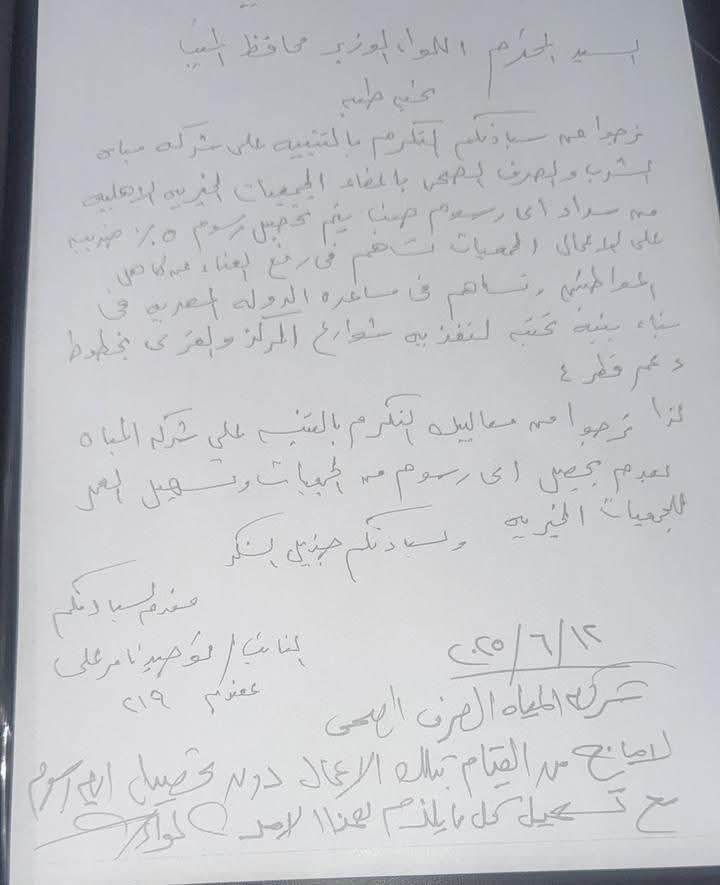 السيد المحترم اللواء الوزير محافظ المنيا
تحيه طيبه
نرجوا من سيادتكم التكرم بالتنبيه على شركه مياه
الشرب والصرف الصحى باعفاء الجمعيات الخيريه الاهليه
من سداد اى رسوم حيث يتم تحصيل رسوم ٥٪ ضريبه
على الاعمال الجمعيات تساهم فى رفع العناء عن كاهل
المواطنين وتساهم فى مساعده الدوله المصريه فى
بناء بنية تحتيه لتغذيه شوارع المركز والقرى بخطوط
دعم قطر ٤
لذا نرجوا من معاليك التكرم بالتنبيه على شركه المياه
بعدم تحصيل اى رسوم من الجمعيات وتسهيل العمل
للجمعيات الخيريه ولسيادتكم جزيل الشكر
مقدم لسيادتكم
النائب / على
عضويه ٢١٩
٢٠٢٥/٦/١٢
شركه المياه الصرف الصحى
لامانع من القيام بتلك الاعمال دون تحصيل اى رسوم
مع تسهيل كل ما يلزم لهذا الامر لواء/